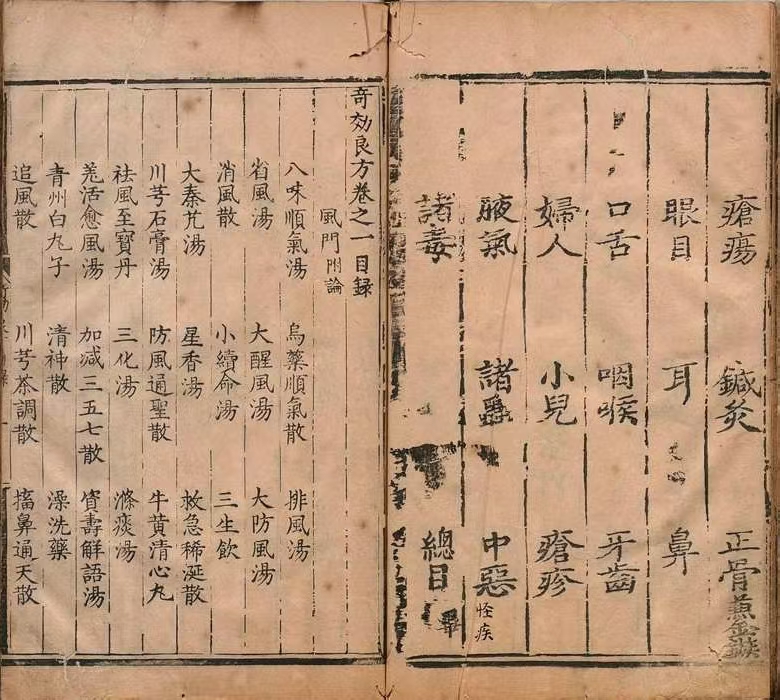 瘡瘍 鍼灸 正骨兼金鏃
眼目 耳 鼻
口舌 咽喉 牙齒
婦人 小兒 瘡疹
腋氣 諸蟲 中惡怪疾
諸毒 總目畢
奇効良方卷之一目録
風門附論
八味順氣湯 烏藥順氣散 排風湯
省風湯 大醒風湯 大防風湯
消風散 小續命湯 三生飲
大秦艽湯 星香湯 救急稀涎散
川芎石膏湯 防風通聖散 牛黃清心丸
祛風至寶丹 三化湯 滌痰湯
羌活愈風湯 加減三五七散 資壽解語湯
青州白丸子 清神散 澡洗藥
追風散 川芎茶調散 搐鼻通天散